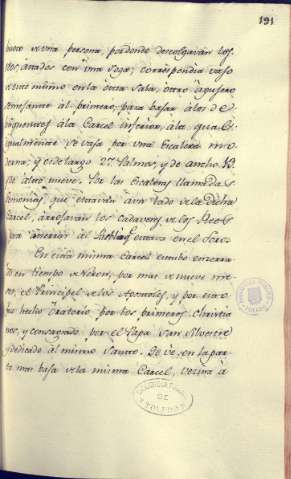 191
busto de una persona, por donde descolgavan los
Reos, atados con una Soga; correspondia vaso
de este mismo en la otra Sala, otro agujero
semejante al primero, para bajar à los de-
linquentes à la Carcel inferior, à la qual
igualmente se vaja por una Escalera mo-
derna; y es de largo 27. Palmos, y de ancho 1
de alto nueve. Por las Escaleras llamadas
Gemonias, que estavan à un lado de la dicha
Carcel, arrojavan los cadaveres de los Reos
para en el Foro.
En esta misma Carcel estubo encerra-
do en tiempo de Neron, por mas de nueve me-
ses, el Principe de los Apostoles, y por eso
fue hecho Oratorio por los primeros Christia-
nos, y consagrado por el Papa San Silvestre
y dedicado al mismo Santo. Se ve en la par-
te mas baja de la misma Carcel, vecina à
DE
TOLEDO